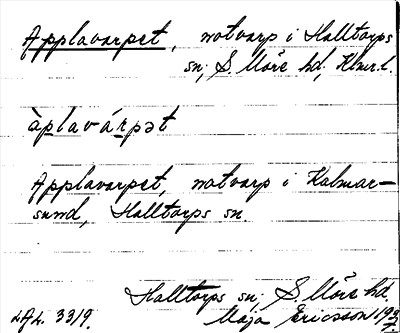 Applavarpet, notvarp i Halltorps
sn; S. Möre hd, Klmr l.
àplavárpət
Applavarpet, notvarp i Kalmar-
sund, Halltorps sn.
Halltorps sn; S. Möre hd.
Maja Ericsson 193